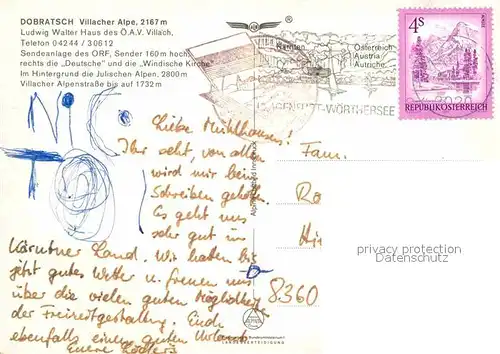 DOBRATSCH Villacher Alpe, 2167 m
Ludwig Walter Haus des Ö.A.V. Villach,
Telefon 04244 / 30612
Sendeanlage des ORF, Sender 160 m hoch,
rechts die „Deutsche" und die „Windische Kirche"
Im Hintergrund die Julischen Alpen, 2800 m
Villacher Alpenstraße bis auf 1732 m
Kärnten
Österreich
Austria
Autriche
KLAGENFURT-WÖRTHERSEE
4S
REPUBLIK ÖSTERREICH
NIC
TO
Liebe Mühlhauser!
Ihr seht, von allen
wird mir beim
Schreiben geholfen.
Es geht uns
sehr gut im
Kärntner Land. Wir haben bis
jetzt gutes Wetter u. freuen uns
über die vielen guten Möglichkeiten
der Freizeitgestaltung. Euch
ebenfalls einen guten Urlaub
Eure
Fam.
Ro
Hi
8360
privacy protection
Datenschutz